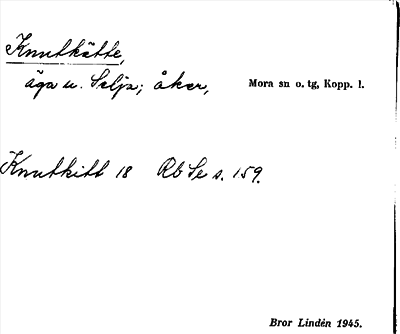 Knutkätte,
äga u. Selja; åker, Mora sn o. tg, Kopp. l.
Knutkitt 18 Rb Se s. 159.
Bror Lindén 1945.